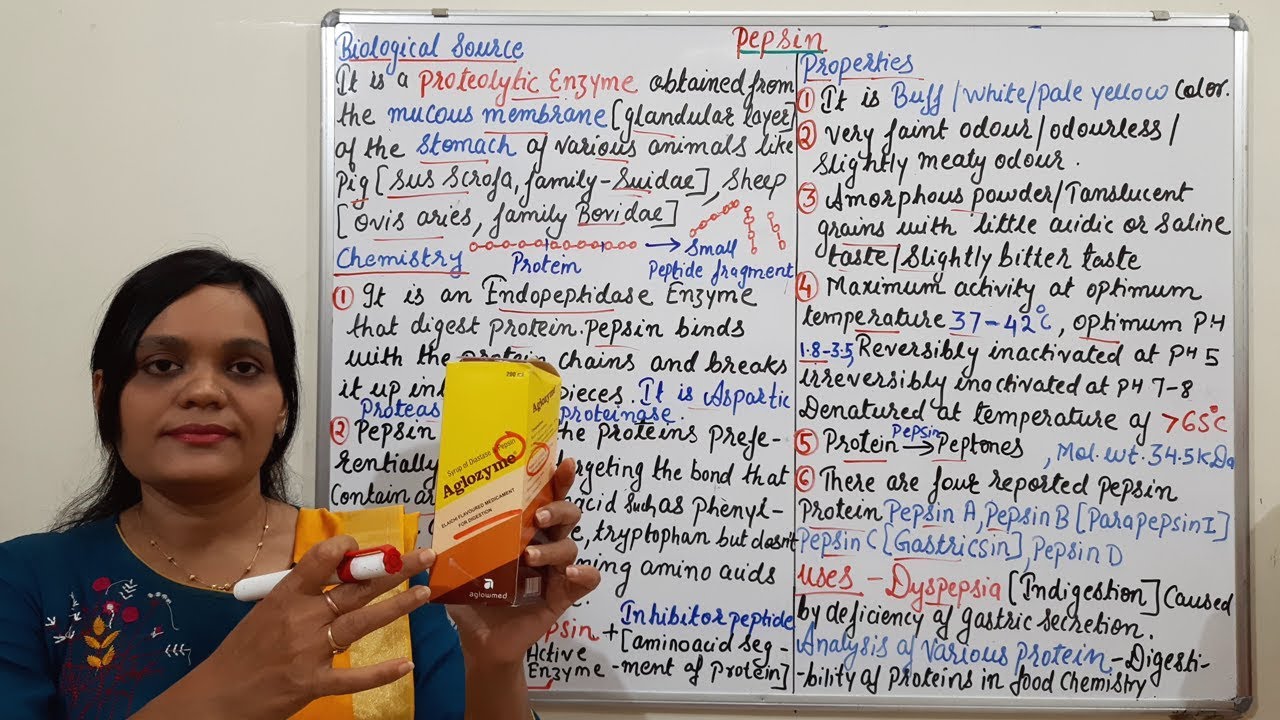 Pepsin
Biological Source
It is a Proteolytic Enzyme obtained from
the mucous membrane [glandular layer]
of the Stomach of various animals like
Pig [Sus Scrofa, family-Suidae], Sheep
[Ovis aries, family Bovidae]
Protein
Small
Peptide fragment
Chemistry
① It is an Endopeptidase Enzyme
that digest protein. Pepsin binds
with the protein chains and breaks
it up in pieces. It is Aspartic
Proteas Proteinase.
② Pepsin the proteins prefe-
rentially rgeting the bond that
Contain a acid such as phenyl-
e, tryptophan but doesn't
ning amino acids
psin + Inhibitor peptide
Active
Enzyme
[aminoacid seg-
-ment of protein]
Properties
① It is Buff/White/Pale yellow Color.
② very faint odour/odourless/
Slightly meaty odour.
③ Amorphous powder/Tanslucent
grains with little acidic or saline
taste/Slightly bitter taste
④ Maximum activity at optimum
temperature 37-42°C, optimum PH
1.8-3.5, Reversibly inactivated at PH 5
irreversibly inactivated at PH 7-8
Denatured at temperature of >65°C
⑤ Protein Pepsin→ Peptones, Mol. wt. 34.5KDa
⑥ There are four reported pepsin
Protein Pepsin A, Pepsin B [ParapepsinI]
Pepsin C [Gastricsin], Pepsin D
Uses - Dyspepsia [Indigestion] Caused
by deficiency of gastric secretion.
Analysis of various protein - Digesti-
-bility of Proteins in food Chemistry
200 ml
Syrup of Diastase & Pepsin
Aglozyme
ELAICHI FLAVOURED MEDICAMENT
FOR DIGESTION
aglowmed
Aglozyme